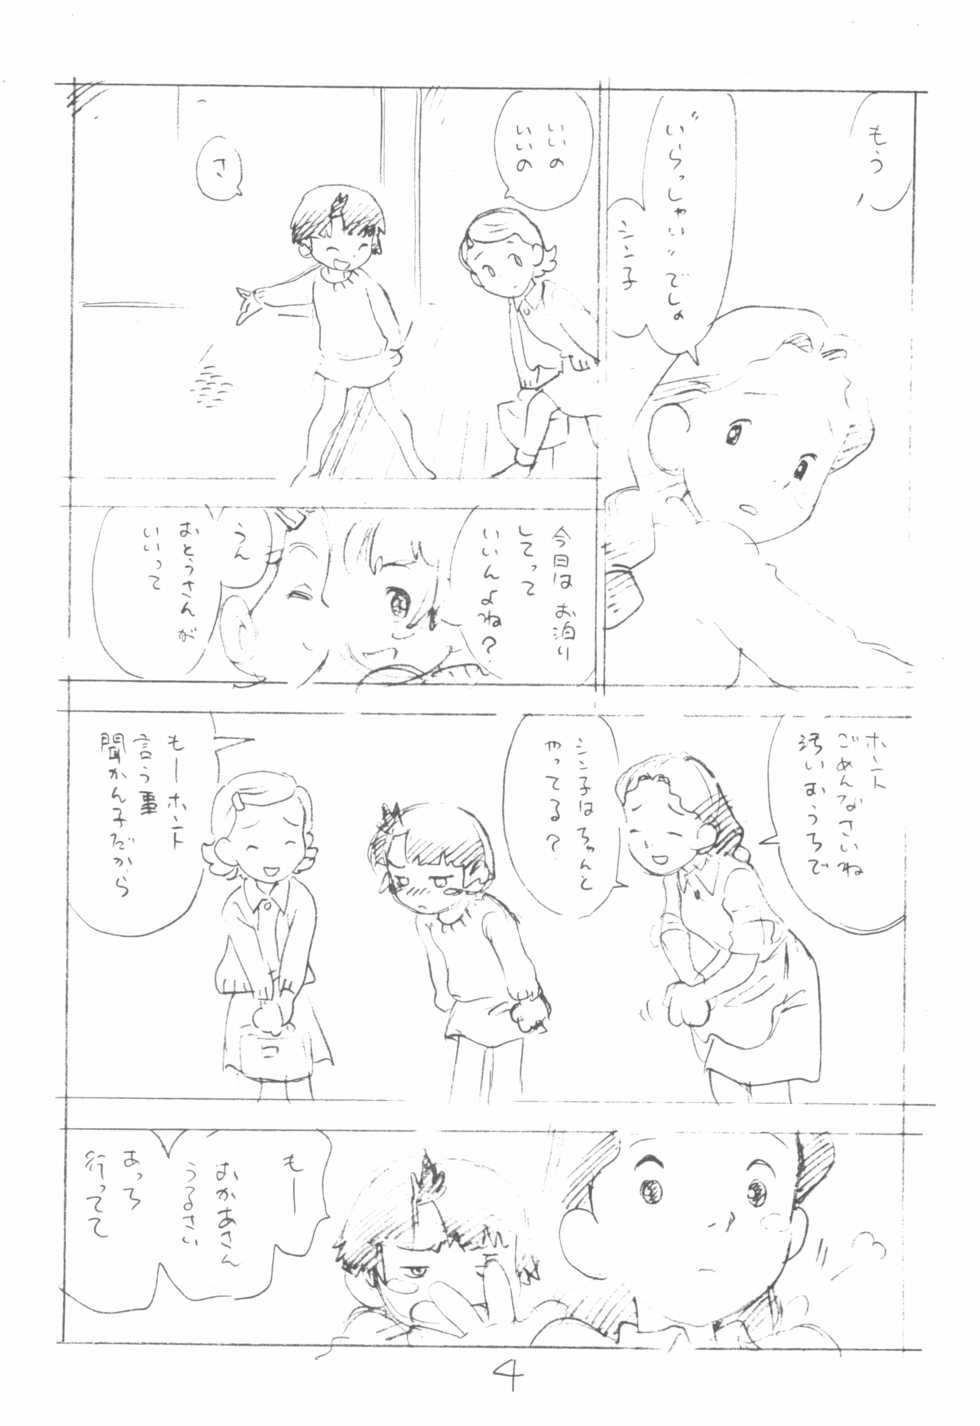 もう
"いらっしゃい"でしょ
シン子
いいの
いいの
さ
今日はお泊り
してって
いいんよね?
うん
おとうさんが
いいって
ホント
ごめんなさいね
汚いおうちで
シン子はちゃんと
やってる?
もーホント
言う事
聞かん子だから
もー
おかあさん
うるさい
あっち
行ってて
4